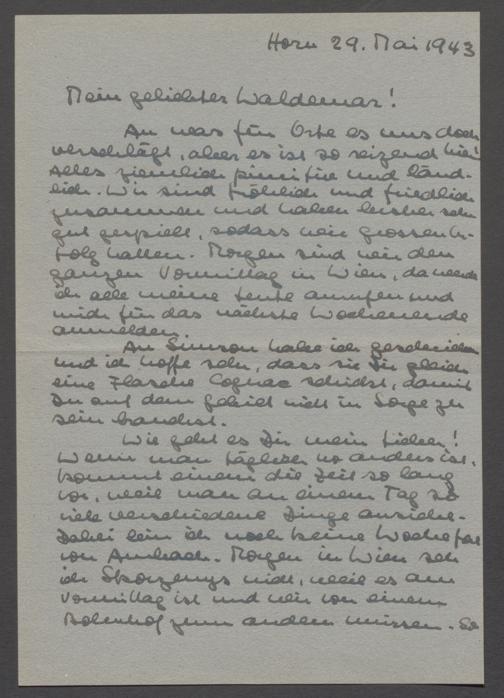 Horn 29. Mai 1943
Mein geliebter Waldemar!
An was für Orte es uns doch
verschlägt, aber es ist so reizend hier!
Alles ziemlich primitiv und länd-
lich. Wir sind fröhlich und friedlich
zusammen und haben bisher sehr
gut gespielt, sodass wir grossen Er-
folg hatten. Morgen sind wir den
ganzen Vormittag in Wien, da werde
ich alle meine Leute anrufen und
mich für das nächste Wochenende
anmelden.
An Simson habe ich geschrieben
und ich hoffe sehr, dass sie Dir gleich
eine Flasche Cognac schickt, damit
Du auf dem Gebiet nicht in Sorge zu
sein brauchst.
Wie geht es Dir mein Lieber!
Wenn man täglich wo anders ist,
kommt einem die Zeit so lang
vor, weil man an einem Tag so
viele verschiedene Dinge ansieht.
Dabei bin ich noch keine Woche fort
von Ambach. Morgen in Wien seh
ich Skorzenys nicht, weil es am
Vormittag ist und wir von einem
Bahnhof zum andern müssen. So